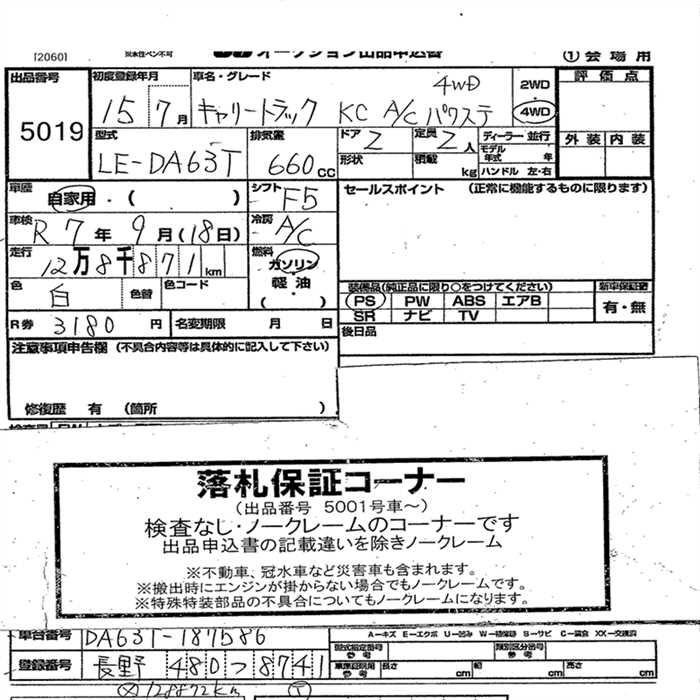 [2060]
出品番号 5019
初度登録年月 15 7 月
車名・グレード キャリートラック KC A/C パワステ 4WD
2WD
4WD
① 会場用
評価点
外装 内装
型式 LE-DA63T
排気量 660 cc
ドア 2
形状
定員 2 人
積載 kg
ディーラー 並行
モデル年式 年
ハンドル 左・右
車歴 自家用・( )
シフト F5
車検 R 7 年 9 月 (18日)
冷房 A/C
走行 12万8千871 km
燃料 ガソリン
軽油
( )
色 白
色替
色コード
R券 3180 円
名変期限 月 日
セールスポイント (正常に機能するものに限ります)
装備品(純正品に限り○をつけてください)
新車保証書
PS PW ABS エアB
SR ナビ TV
有・無
後日品
注意事項申告欄 (不具合内容等は具体的に記入して下さい)
修復歴 有 (箇所 )
落札保証コーナー
(出品番号 5001号車～)
検査なし・ノークレームのコーナーです
出品申込書の記載違いを除きノークレーム
※不動車、冠水車など災害車も含まれます。
※搬出時にエンジンが掛からない場合でもノークレームです。
※特殊特装部品の不具合についてもノークレームになります。
車台番号 DA63T-187586
登録番号 長野 480 つ 8741
型式指定番号 参考
類別区分番号 参考
長さ cm
幅 cm
高さ cm
128872km